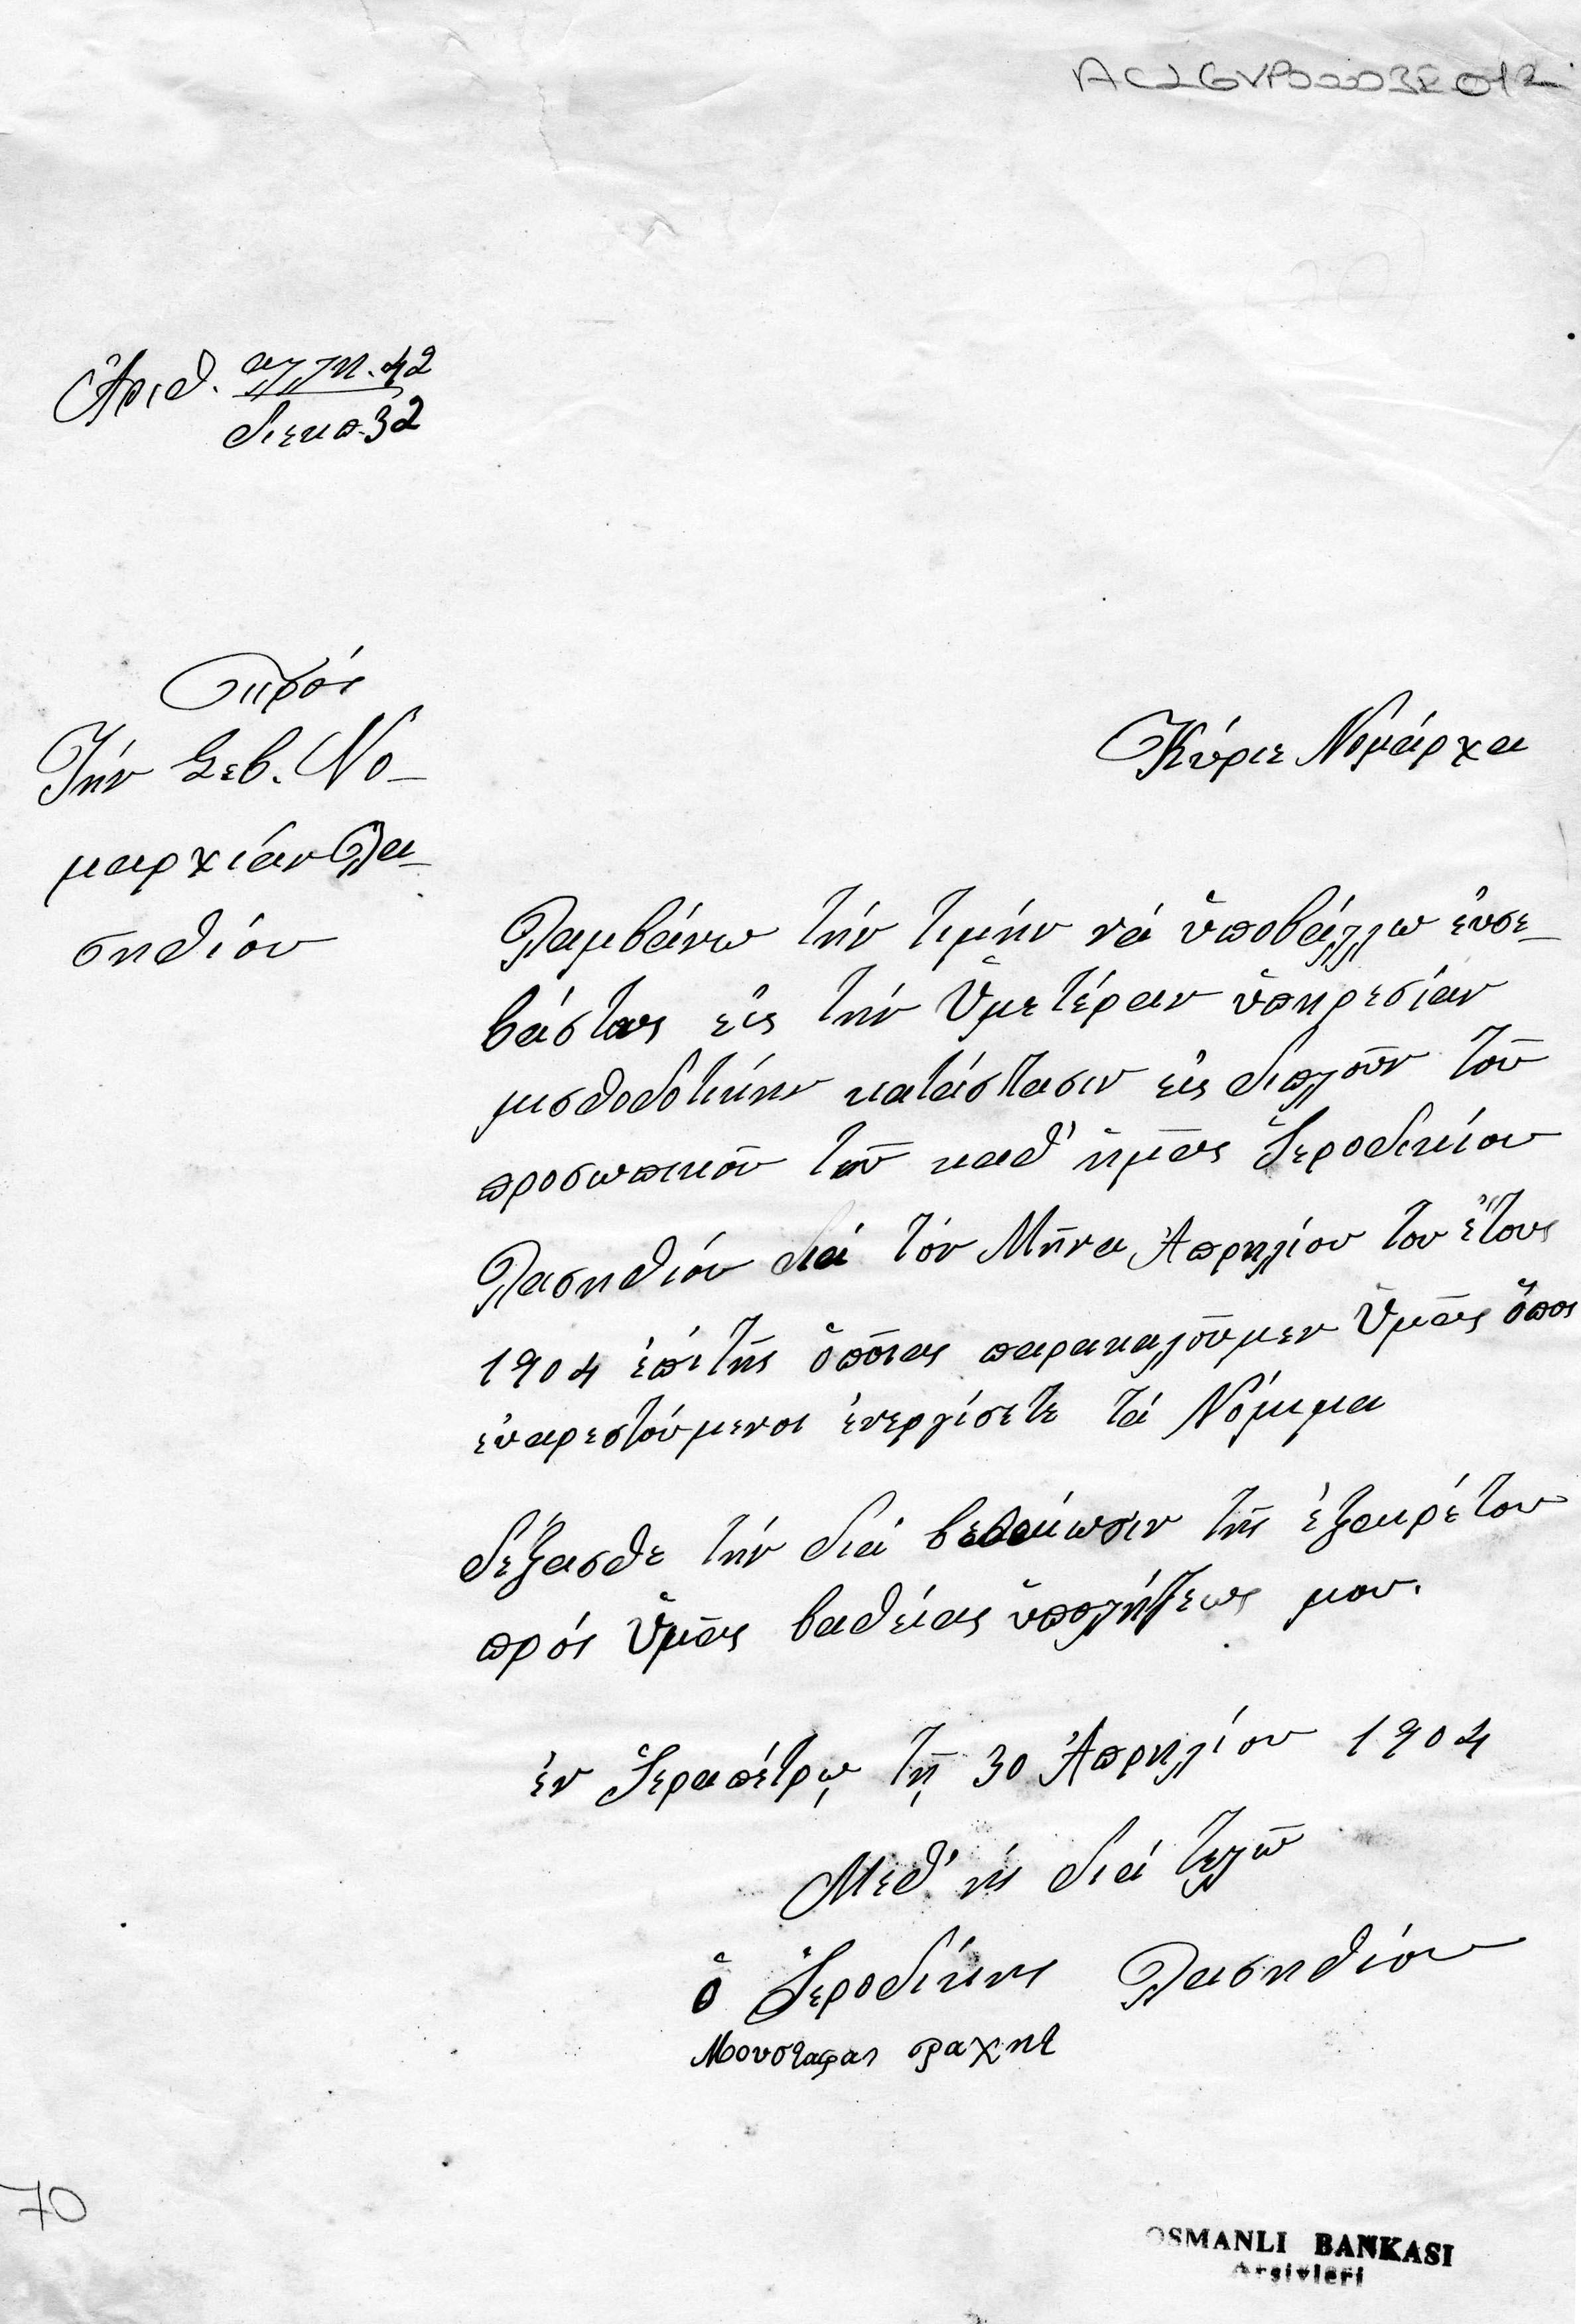 Ἀριθ. πρωτ. 42
διεκπ. 32
Πρός
Τήν Σεβ. Νο-
μαρχίαν Λα-
σηθίου
Κύριε Νομάρχα
Λαμβάνω τήν τιμήν νά ὑποβάλλω εὐσε-
βάστως εἰς τήν Ὑμετέραν ὑπηρεσίαν
μισθοδοτικήν κατάστασιν εἰς διπλοῦν τοῦ
προσωπικοῦ τοῦ καθ' ἡμᾶς Ἱεροδικίου
Λασηθίου διά τόν Μῆνα Ἀπρηλίου του ἔτους
1904 ἐπί τῆς ὁποίας παρακαλοῦμεν Ὑμᾶς ὅπος
εὐαρεστούμενοι ἐνεργίσετε τά Νόμιμα
δέξασθε τήν διά βεβαίωσιν τῆς ἐξαιρέτου
πρός Ὑμᾶς βαθείας ὑπολήψεως μου.
ἐν Ἱεραπέτρῳ τῇ 30 Ἀπρηλίου 1904
Μεθ' ἧς διά τελῶ
ὁ Ἱεροδίκης Λασηθίου
Μουσταφας ραχητ
70
OSMANLI BANKASI
Arşivleri